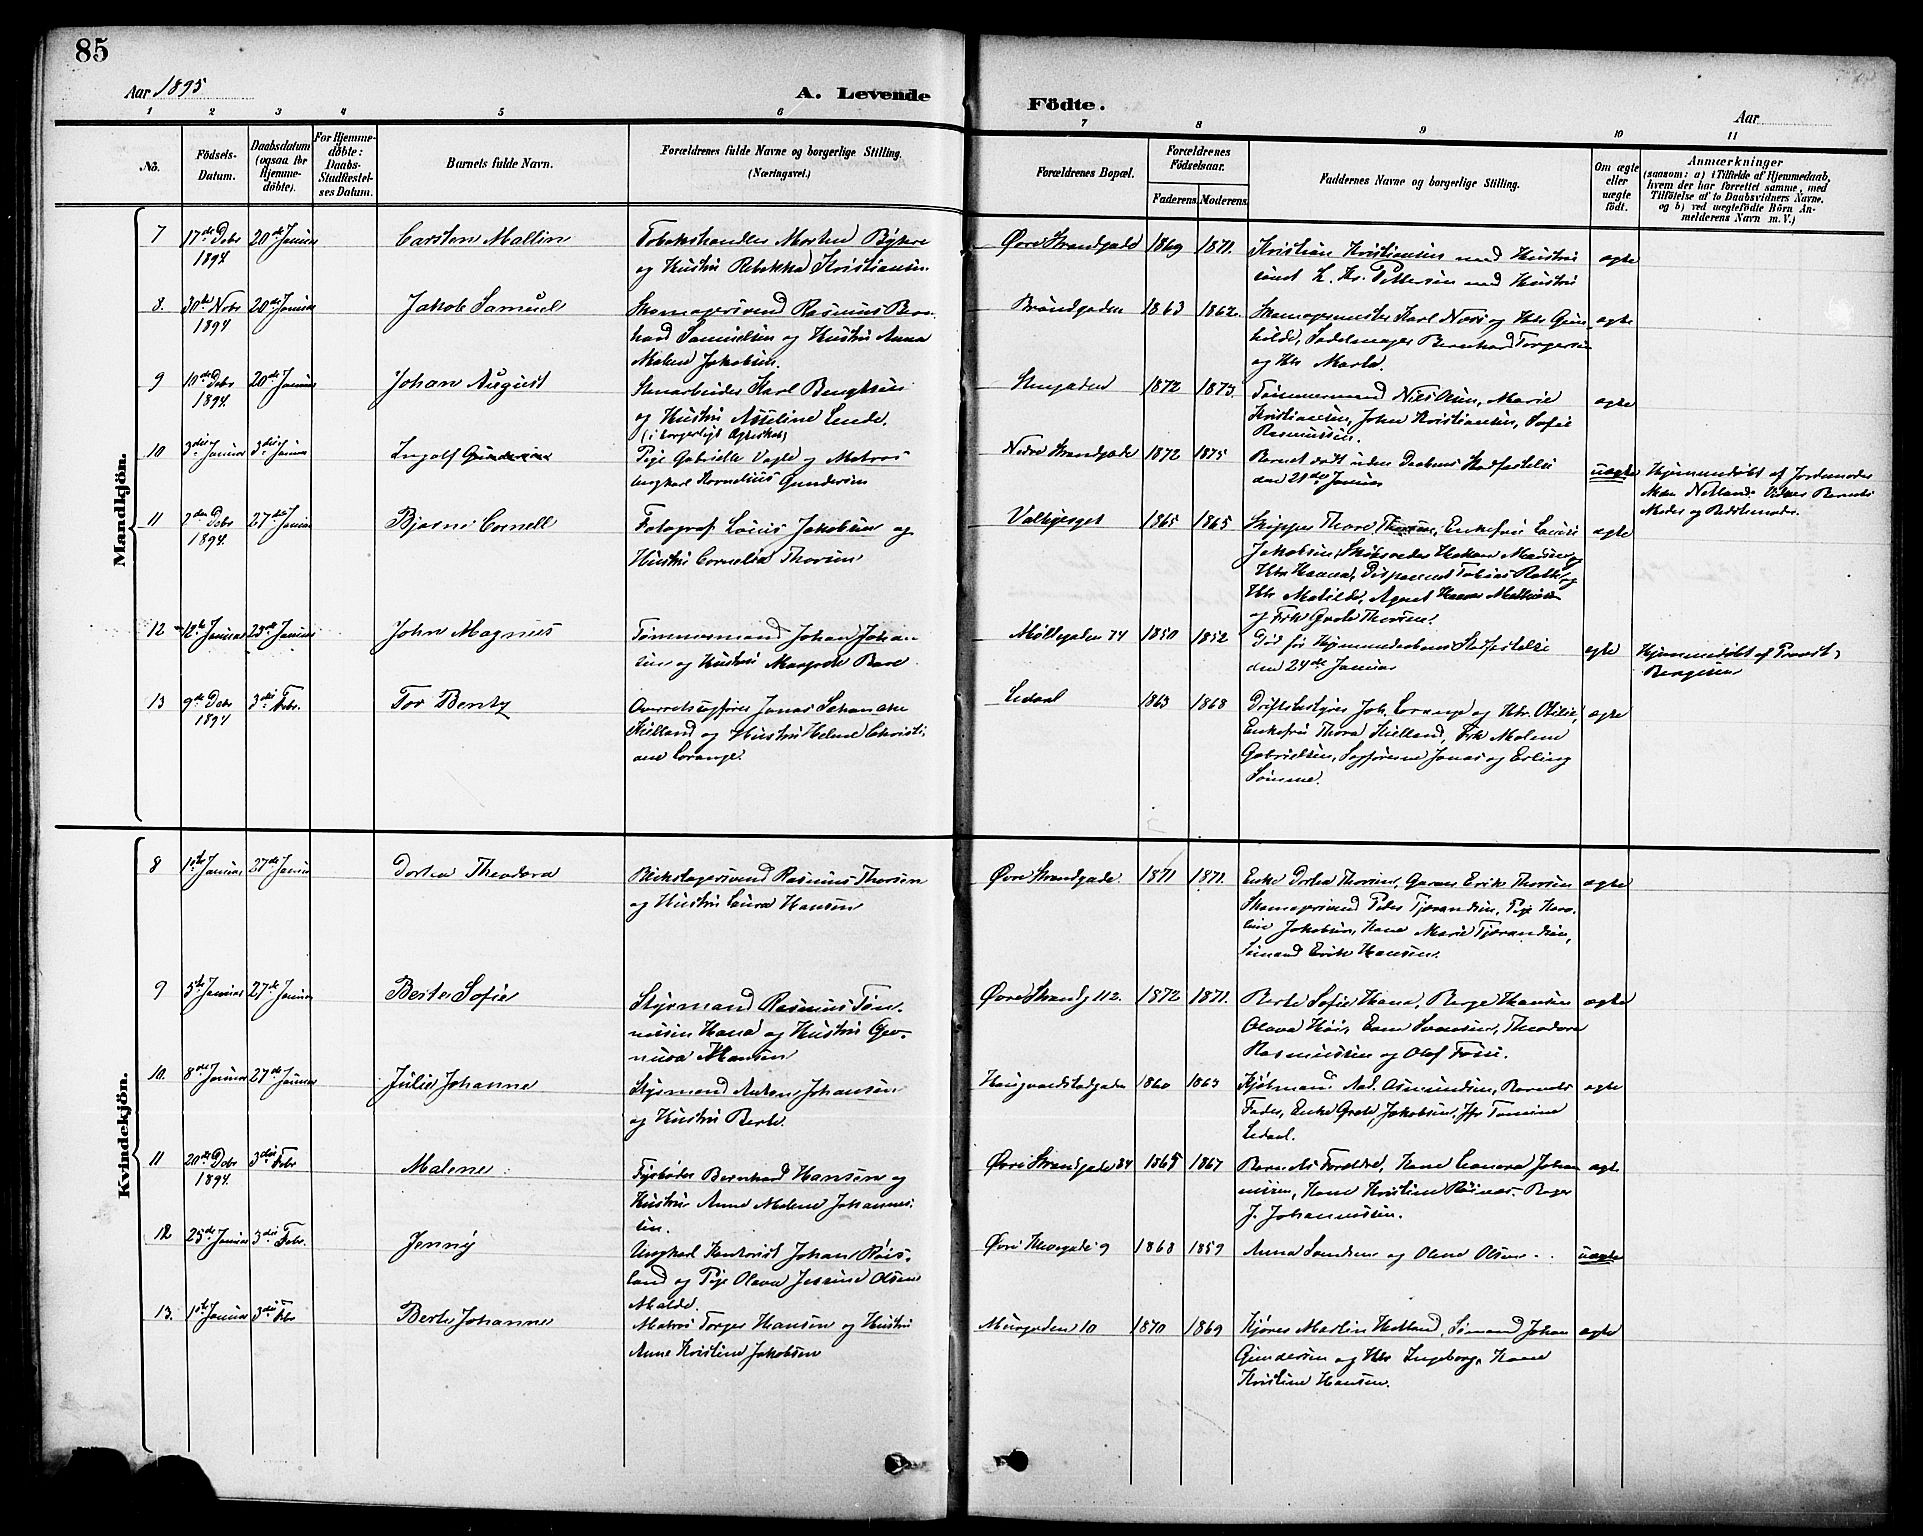 85
Aar 1895
A. Levende
Födte.
Aar
1 2 3 4 5 6 7 8 9 10 11
No.
Födsels-Datum.
Daabsdatum (ogsaa for Hjemme-döbte).
For Hjemme-döbte: Daabs-Stadfæstel-ses Datum.
Barnets fulde Navn.
Forældrenes fulde Navne og borgerlige Stilling.
(Næringsvei.)
Forældrenes Bopæl.
Forældrenes Födselsaar.
Faderens. Moderens.
Faddernes Navne og borgerlige Stilling.
Om ægte eller uægte födt.
Anmærkninger
(saasom: a) i Tilfælde af Hjemmedaab,
hvem der har forrettet samme, med
Tilföielse af to Daabsvidners Navne,
og b) ved uægtefödte Börn An-
melderens Navn m. V.)
Mandkjön.
7 17de Debr 1894 20de Januar Carsten Mallin
Tobakshandler Morten
og Hustru Rebekka Kristiansen
Øvre Strandgade 1869 1871. Kristian Kristiansen med Hustru
samt L. Kr. Pettersen med Hustru
ægte
8. 30te Novbr 1894 20de Januar Jakob Samuel
Skomagersvend Rasmus Bern-
hard Samuelsen og Hustru Anna
Malene Jakobsen.
Brøndgaden 1863 1862. Skomagermester Karl Næss og Htr Gun-
hilde, Sadelmager Bernhard Torgersen
og Htr Marta.
ægte
9 10de Debr 1894. 20de Januar Johan August
Stenarbeider Karl Bengtsen
og Hustru Asseline Lende.
(i borgerligt Ægteskab)
Stengaden 1872 1873. Tømmermand Nils Olsen, Marie
Kristiansen, John Kristiansen, Sofie
Rasmussen.
ægte
10 3die Januar 3die Januar Ingolf Gundersen
Pige Gabrielle Vagle og Matros
Ungkarl Kornelius Gundersen
Nedre Strandgade 1872 1875 Barnet dødt uden Daabens Stadfestelse
den 21de Januar
uægte
Hjemmedøbt af Jordemoder
Netland. Vidner Barnets
Moder og Bedstemoder.
11 2den Debr 1894. 27de Januar Bjarne Cornell
Fotograf Louis Jakobsen og
Hustru Cornelia Thorsen
Valbjerget 1865 1865 Skipper Thore Thorsen, Enkefru Louise
Jakobsen, Hakon og
Htr Hanna, Disponent Tobias og
Htr Matilde, Agent
og Frk Grete Thorsen.
ægte
12 12te Januar 23de Januar John Magnus
Tømmermand Johan Johan-
sen og Hustru Margrete
Møllegaden 74 1850 1852 Død før Hjemmedaabens Stadfestelse
den 24de Januar
ægte
Hjemmedøbt af Provst
13 9de Debr 1894 3die Febr. Tor Bentz
Overretssagfører Jonas Schancke
Kielland og Hustru Helene Christi-
ane Lorange.
Ledaal 1863 1868 Driftsbestyrer Joh. Lorange og Htr Otilie,
Enkefru Thora Kielland, Frk Malene
Gabrielsen, Sagførerne Jonas og Erling
Sømme.
ægte
Kvindekjön.
8 1ste Januar 27de Januar Dortea Theodora
Blikslagersvend Rasmus Thorsen
og Hustru Laura Hansen
Øvre Strandgade. 1871 1871. Enke Dortea Thorsen, Garver Erik Thorsen
Skomagersvend Peder Tjørandsen, Pige Karo-
line Jakobsen, Kone Marie Tjørandsen,
Sømand Erik Hansen.
ægte
9 5te Januar 27de Januar Berte Sofie
Styrmand Rasmus Tøn-
nessen Hana og Hustru Ge-
nueva Hansen
Øvre Strandg 112. 1872 1871. Berte Sofie Hana, Berge Hansen
Olava Høie, Svensen, Theodora
Rasmussen og Olof
ægte
10. 8de Januar 27de Januar Julie Johanne
Styrmand Anton Johansen
og Hustru Berte.
Haugvaldstadgaden 1860 1863 Kjøbmand Ad. Osmundsen, Barnets
Fader, Enke Grete Jakobsen, Jfr Tomine
Ledaal.
ægte
11 20de Debr 1894. 3die Febr Malene
Fyrbøder Bernhard Hansen og
Hustru Anne Malene Johannes-
sen.
Øvre Strandgade 84 1865 1867 Barnets Forældre, Kone Leonora Johan-
nessen, Kone Kristine Bager
J. Johannessen.
ægte
12 25de Januar 3die Febr. Jenny
Ungkarl Kontorist Johan
land og Pige Olava Jessine Olsen
Malde.
Øvre Klevegade 9 1868 1859 Anna Samdsen og Olene Olsen
uægte
13. 1ste Januar 3die Febr Berte Johanne
Matros Torger Hansen og Hustru
Anne Kristine Jakobsen
Murgaden 10 1870 1869 Kjører Martin Hetland, Sømand Johan
Gundersen og Htr Ingeborg, Kone
Kristine Hansen.
ægte